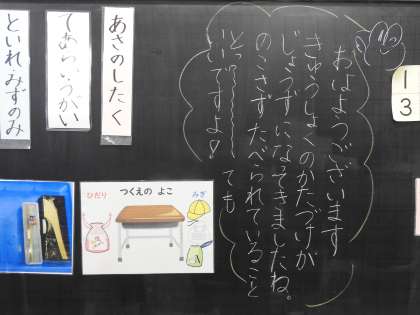 おはようございます
きゅうしょくのかたづけが
じょうずになってきましたね。
のこさずたべられていること
とっても
いいですよ!
あさのしたく
てあらいうがい
といれ みずのみ
つくえの よこ
ひだり
みぎ
1
3